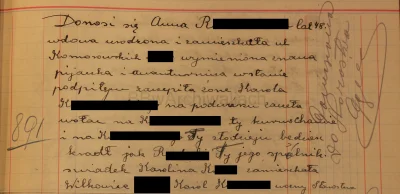 Donosi się Anna R lat 48.
wdowa urodzona i zamieszkała ul
Komorowskich wymieniona znana
pijanka i awanturnica w stanie
podpitym zaczepiła żonę Karola
K na podwórzu
K ty kurwo
i na K Ty złodzieju będziesz
kradł jak R Ty jego spólnik.
świadek Karolina K zamieszkała
Wilkowice Karol K
891